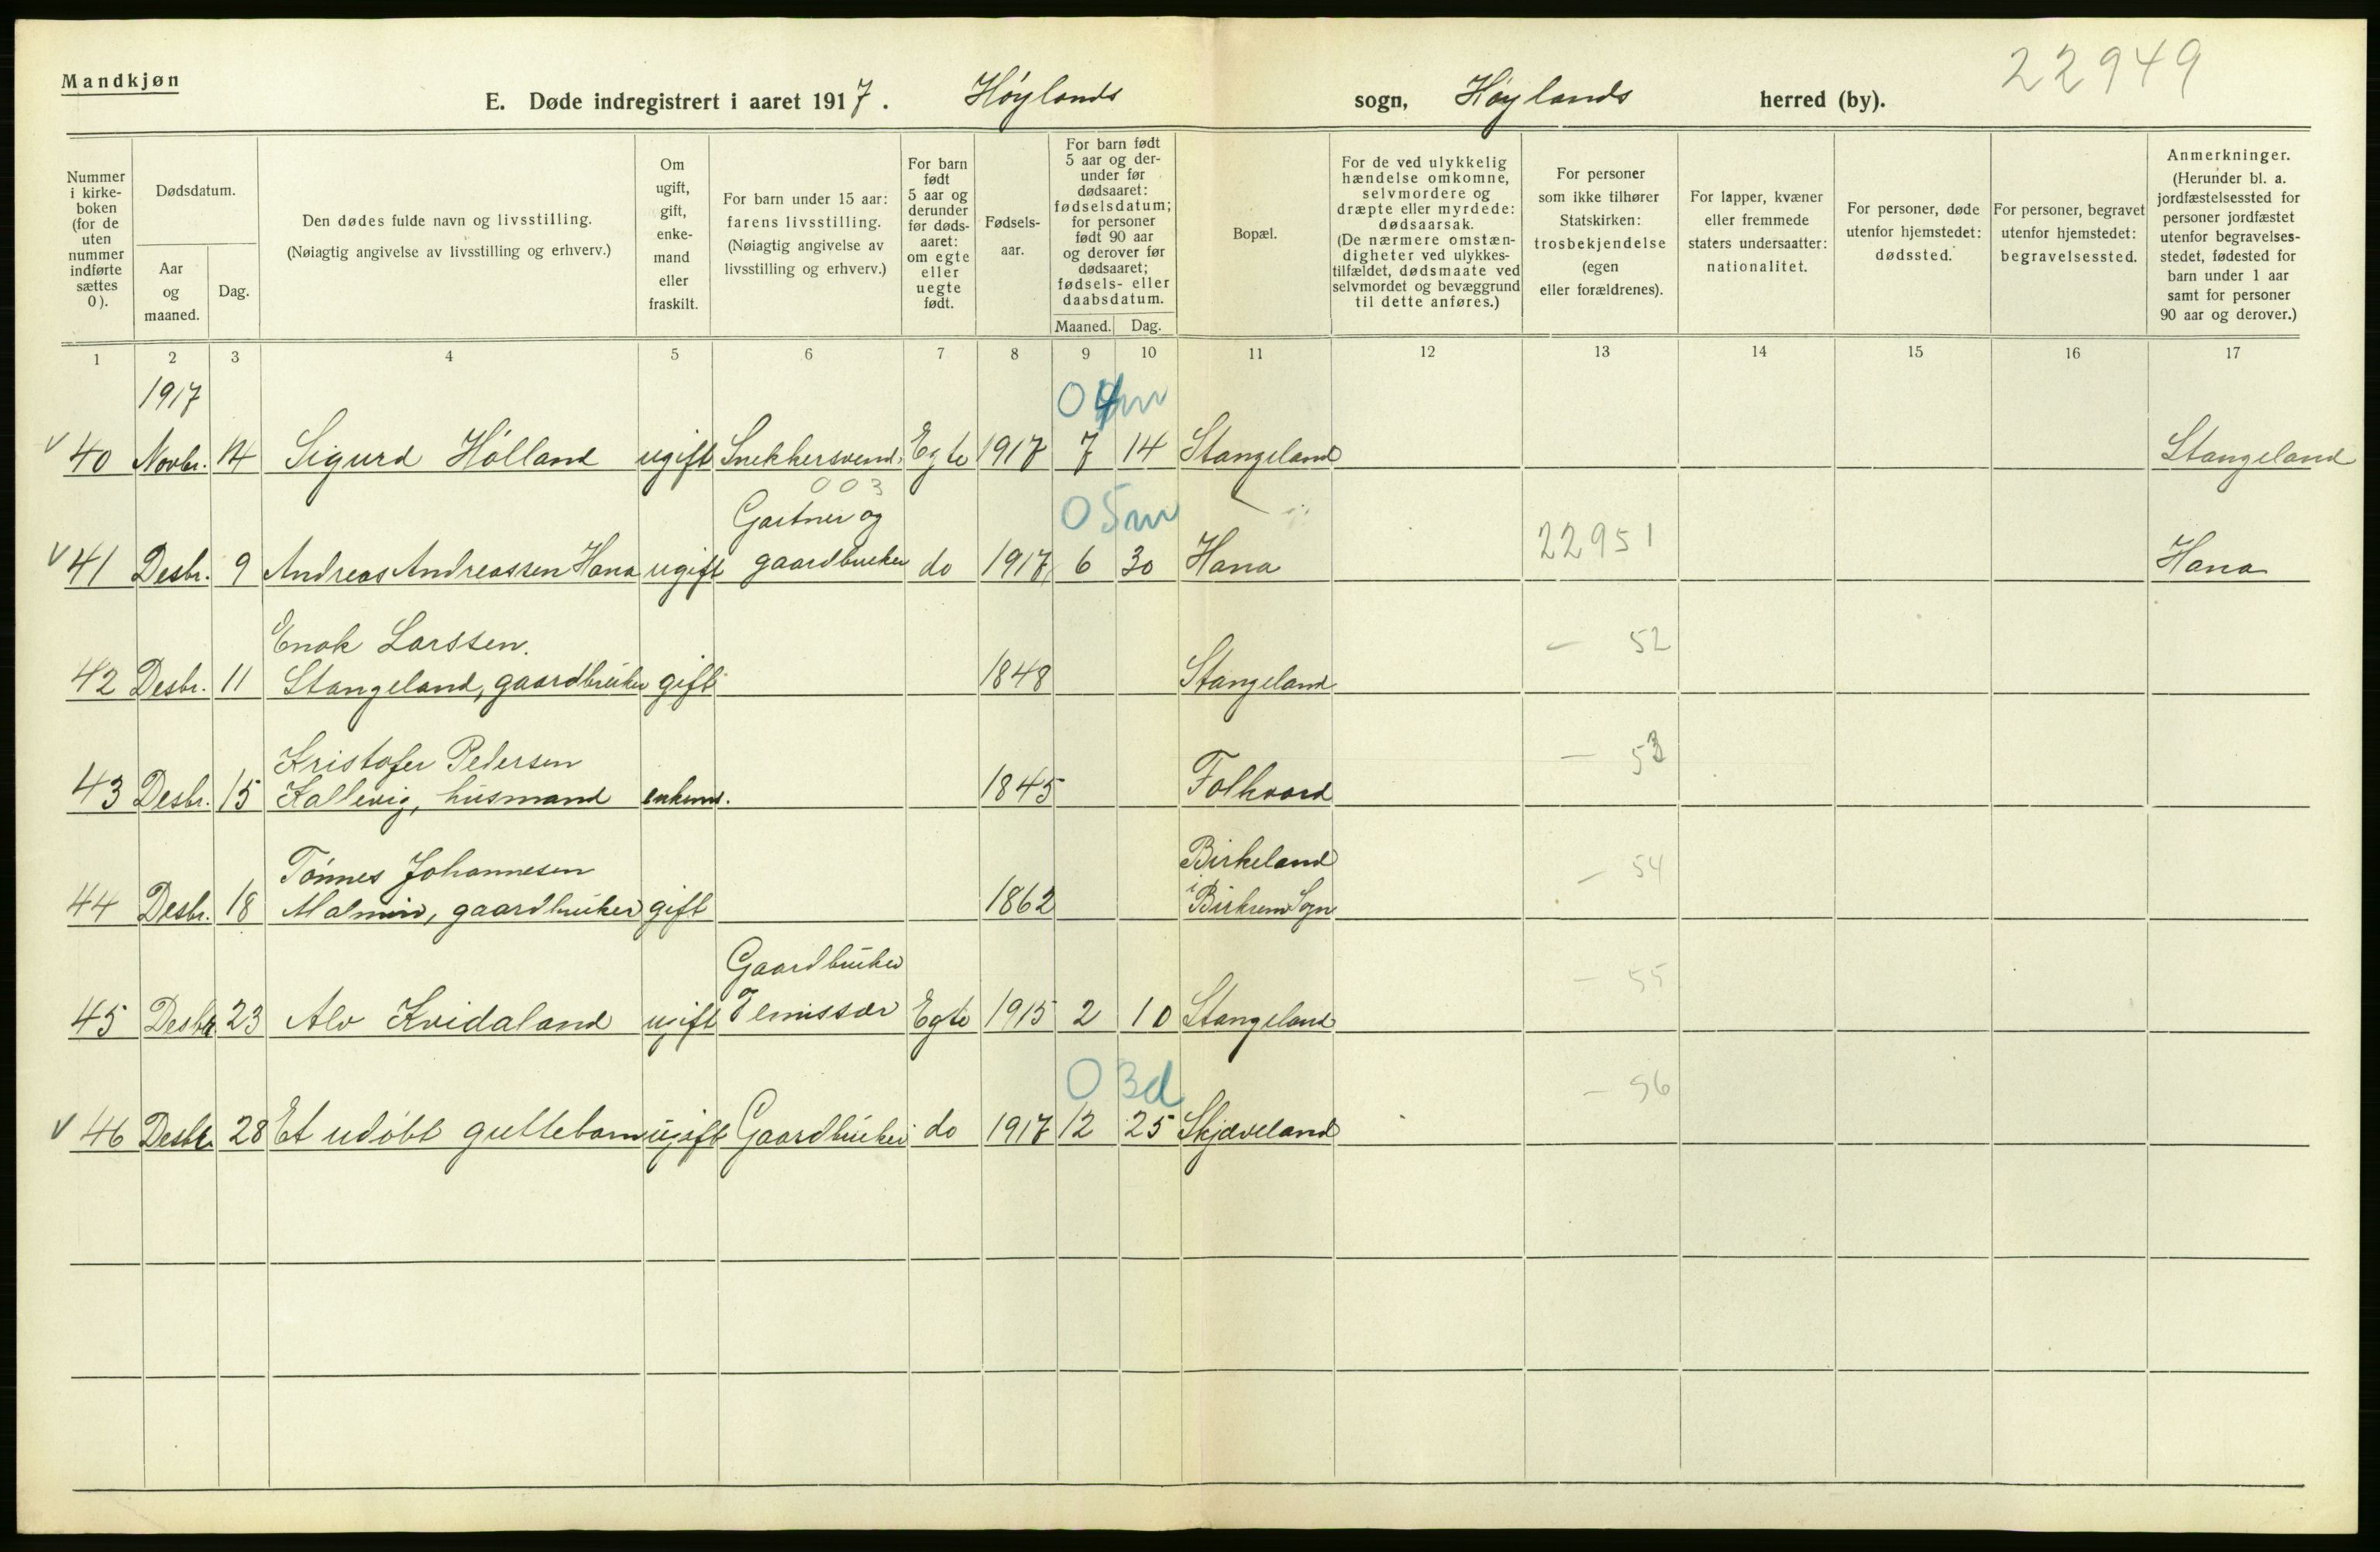 Mandkjøn
22949
E. Døde indregistrert i aaret 1917. Høylands sogn, Høylands herred (by).
Nummer
i kirke-
boken
(for de
uten
nummer
indførte
sættes
0).
Dødsdatum.
Aar
og
maaned.
Dag.
Den dødes fulde navn og livsstilling.
(Nøiagtig angivelse av livsstilling og erhverv.)
Om
ugift,
gift,
enke-
mand
eller
fraskilt.
For barn under 15 aar:
farens livsstilling.
(Nøiagtig angivelse av
livsstilling og erhverv.)
For barn
født
5 aar og
derunder
før døds-
aaret:
om egte
eller
uegte
født.
Fødsels-
aar.
For barn født
5 aar og der-
under før
dødsaaret:
fødselsdatum;
for personer
født 90 aar
og derover før
dødsaaret;
fødsels- eller
daabsdatum.
Maaned. Dag.
Bopæl.
For de ved ulykkelig
hændelse omkomne,
selvmordere og
dræpte eller myrdede:
dødsaarsak.
(De nærmere omstæn-
digheter ved ulykkes-
tilfældet, dødsmaate ved
selvmordet og bevæggrund
til dette anføres.)
For personer
som ikke tilhører
Statskirken:
trosbekjendelse
(egen
eller forældrenes).
For lapper, kvæner
eller fremmede
staters undersaatter:
nationalitet.
For personer, døde
utenfor hjemstedet:
dødssted.
For personer, begravet
utenfor hjemstedet:
begravelsessted.
Anmerkninger.
(Herunder bl. a.
jordfæstelsessted for
personer jordfæstet
utenfor begravelses-
stedet, fødested for
barn under 1 aar
samt for personer
90 aar og derover.)
1 2 3 4 5 6 7 8 9 10 11 12 13 14 15 16 17
1917
04m
v 40 Novbr. 14 Sigurd Hólland ugift Snekkersvend, Egte 1917 7 14 Stangeland Stangeland
003
Gartner og 05m
v 41 Desbr. 9 Andreas Andreassen Hana ugift gaardbruker do 1917 6 30 Hana 22951 Hana
Enok Larssen. — 52
42 Desbr. 11 Stangeland, gaardbruker gift 1848 Stangeland
Kristofer Pedersen — 53
43 Desbr. 15 Kallevig, husmand enkem. 1845 Folkvord
Tónnes Johannesen Birkeland — 54
44 Desbr. 18 Malmin, gaardbruker gift 1862 i Birkrem Sogn
Gaardbruker — 55
45 Desbr. 23 Alv Kvidaland ugift og emissær Egte 1915 2 10 Stangeland
03d — 56
v 46 Desbr. 28 Et udóbt guttebarn ugift Gaardbruker do 1917 12 25 Skjæveland